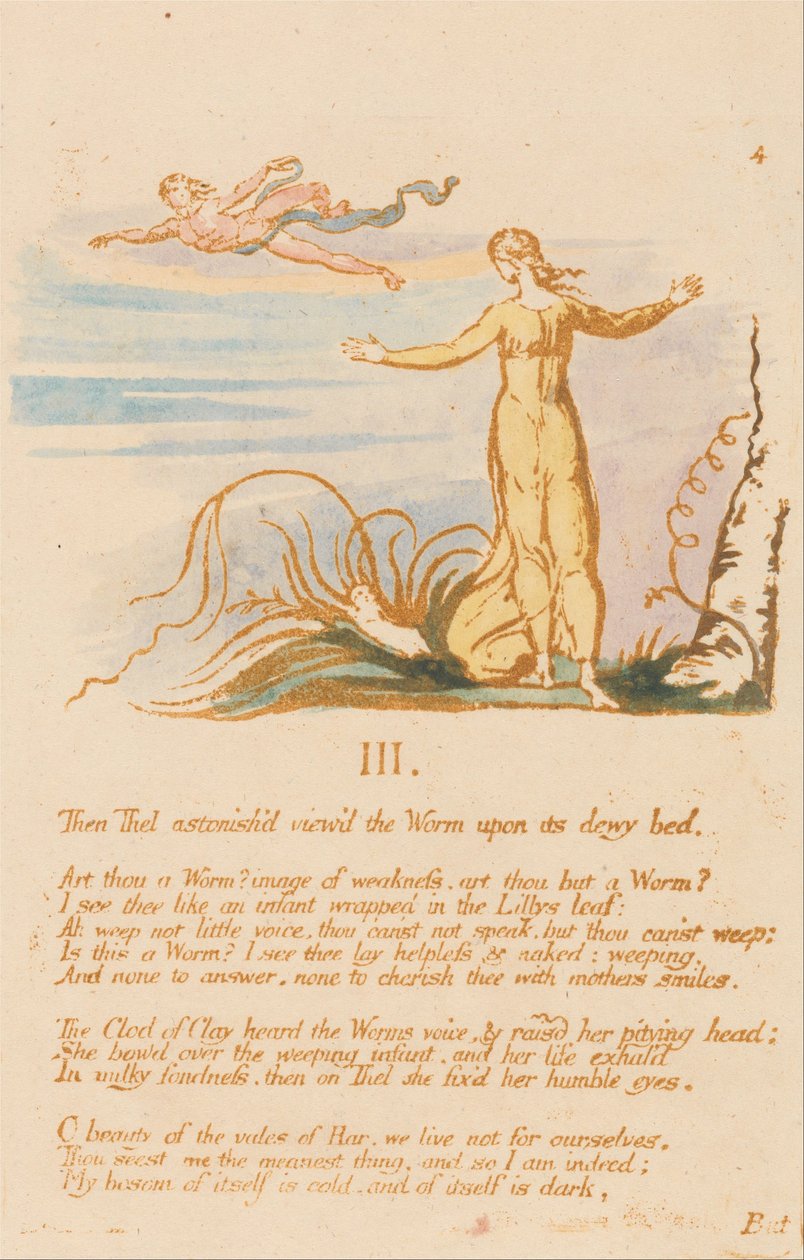 4
III.
Then Thel astonish'd view'd the Worm upon its dewy bed.
Art thou a Worm? image of weakneſs. art thou but a Worm?
I see thee like an infant wrapped in the Lillys leaf:
Ah weep not little voice, thou can'st not speak, but thou can'st weep:
Is this a Worm? I see thee lay helpleſs & naked: weeping,
And none to answer, none to cherish thee with mothers smiles.
The Clod of Clay heard the Worms voice, & rais'd her pitying head;
She bow'd over the weeping infant, and her life exhal'd
In milky fondneſs, then on Thel she fix'd her humble eyes.
O beauty of the vales of Har, we live not for ourselves,
Thou seest me the meanest thing, and so I am indeed;
My bosom of itself is cold, and of itself is dark,
But